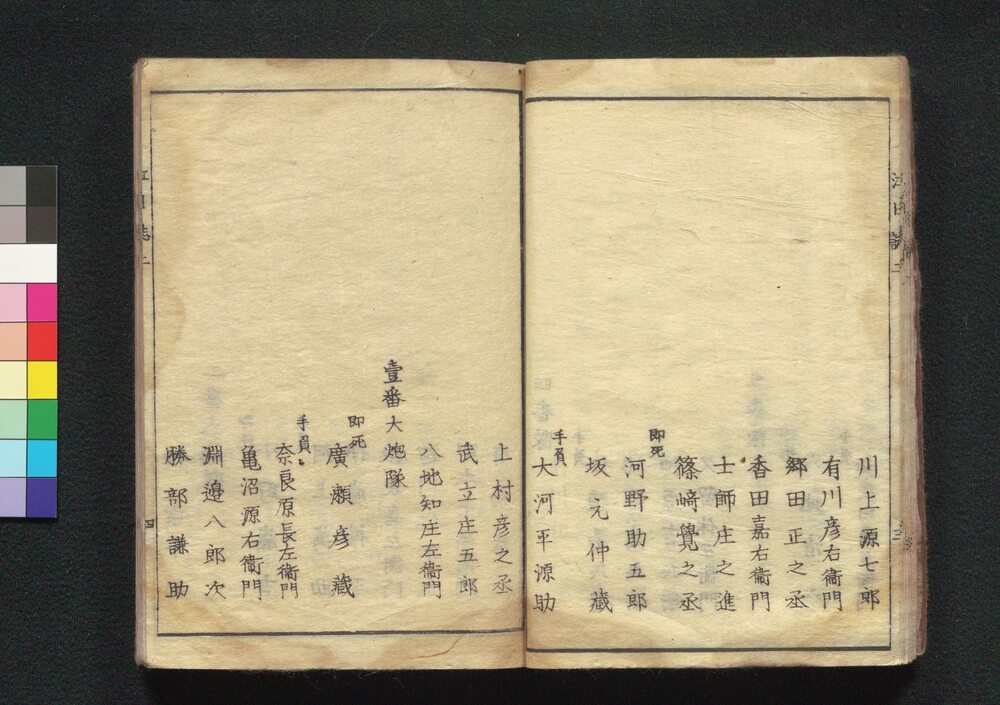 川上源七郎
有川彦右衞門
郷田正之丞
香田嘉右衞門
士師庄之進
篠﨑覺之丞
即死
河野助五郎
坂元仲藏
手負
大河平源助
上村彦之丞
武立庄五郎
八地知庄左衞門
壹番大炮隊
即死
廣瀬彦藏
手負
奈良原長左衞門
亀沼源右衞門
淵邉八郎次
勝部謙助
四